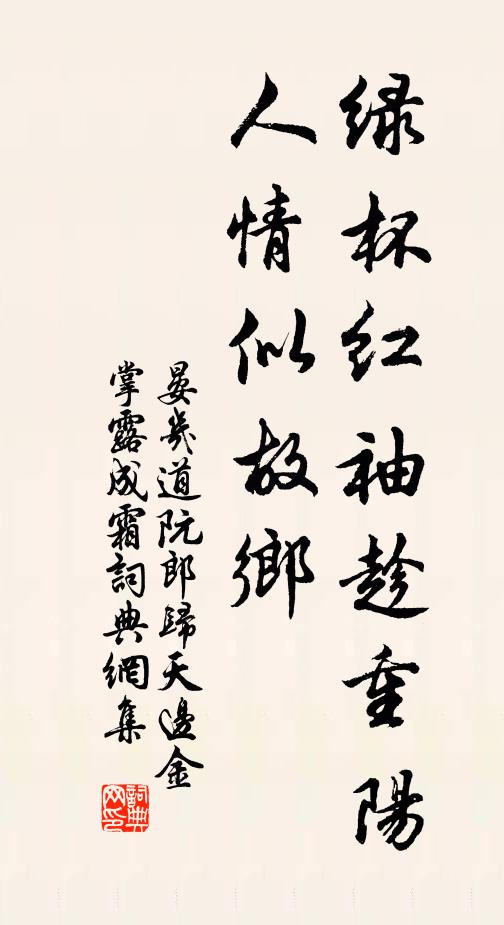 绿杯红袖趁重陽
人情似故鄉
晏幾道阮郎歸天邊金
掌露成霜詞典網集
詞典网印